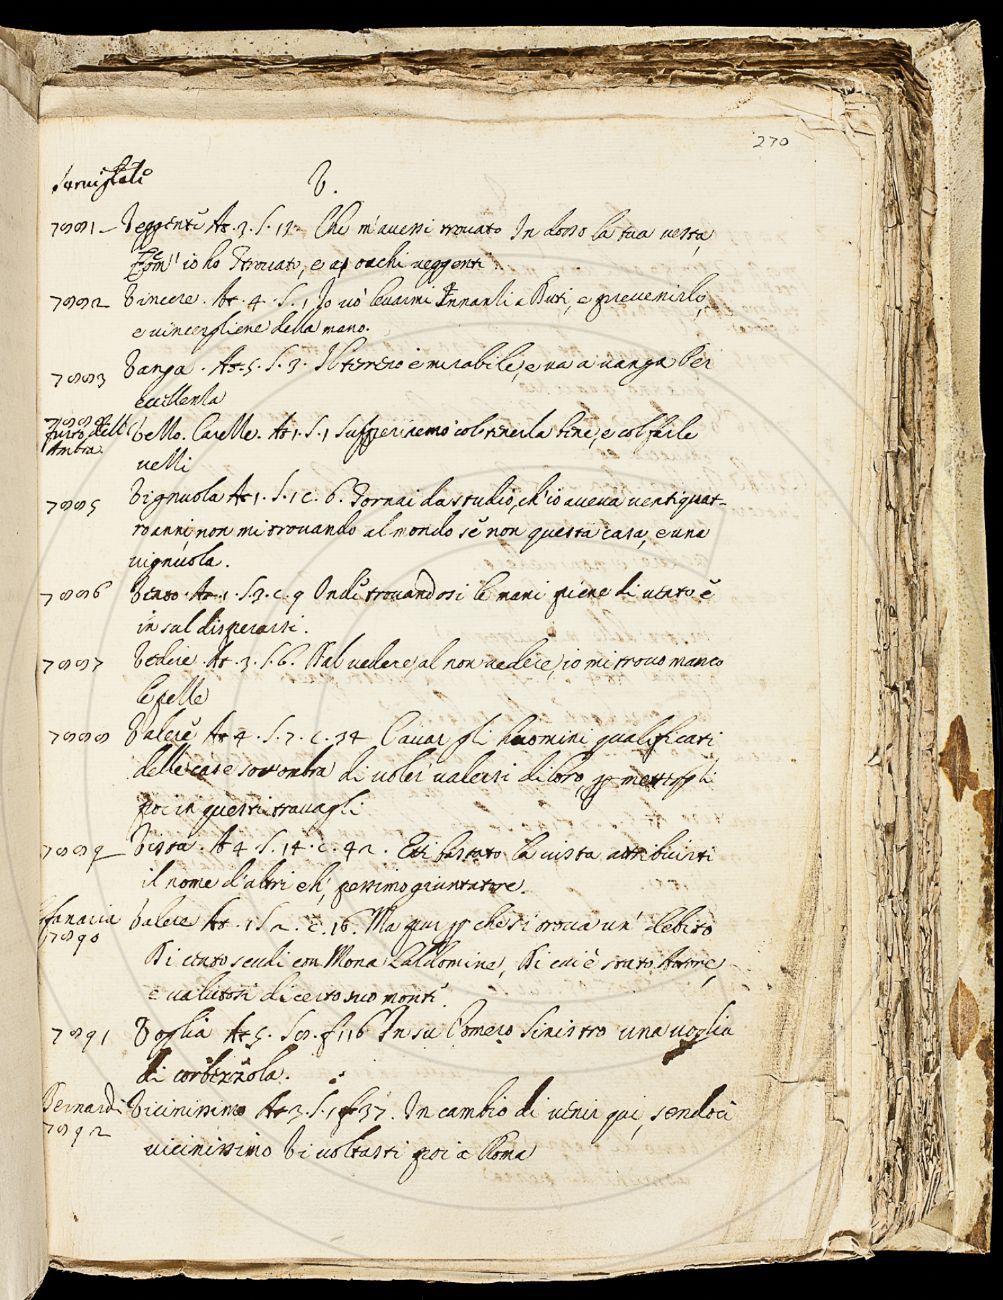 270
V.
7981 Veggenti At. 3. S. 12. Che m'avessi trovato In dosso la tua vesta,
Com' io ho trovato, e a occhi veggenti
7982 Vincere. At. 4. S. 1 Io vò levarmi Innanti a Ruti, e prevenirlo,
e vincergliene della mano.
7983 Vanga. At. 5. S. 3. Il terzo è mirabile, e va a vanga Per
eccellenza
Furto dell' Vello. Cavelle. At. 1. S. 1 Suppliremo col tinerla bene, e col farle
Ambra
velli
7985 Vignuola At. 1. S. 1 c. 6. Tornai da studio, ch'io aveva ventiquat-
tro anni, non mi trovando al mondo se non questa casa, e una
vignuola.
7986 At. 1. S. 3. c. 9 Onde trovandosi le mani piene di vento è
in sul disperarsi.
7987 Vedere At. 3. S. 6. Dal vedere, al non vedere, io mi trovo manco
le pelle
7988 Valere At. 4. S. 7. c. 34 Cavar gli huomini qualificati
delle case sott'ombra di voler valersi di loro, p mettergli
poi in questi travagli
7989 Vista. At. 4. S. 14. c. 42. Eti bastato la vista attribuirti
il nome d'altri eh, pessimo giuntatore.
7990 Valere At. 1 S. 2. c. 16. Ma qui p che si trova un' debito
Di cento scudi con Mona Laldomine, Di cui è stato Attore,
e valutosi di certo suo monte.
7991 Voglia At. 5. f 116 In su l'omero sinistro una voglia
di corbezzola.
Bernardi Vicinissimo At. 3. S. 1 f 37. In cambio di venir qui, sendoci
7992
vicinissimo Ti voltasti poi a Roma